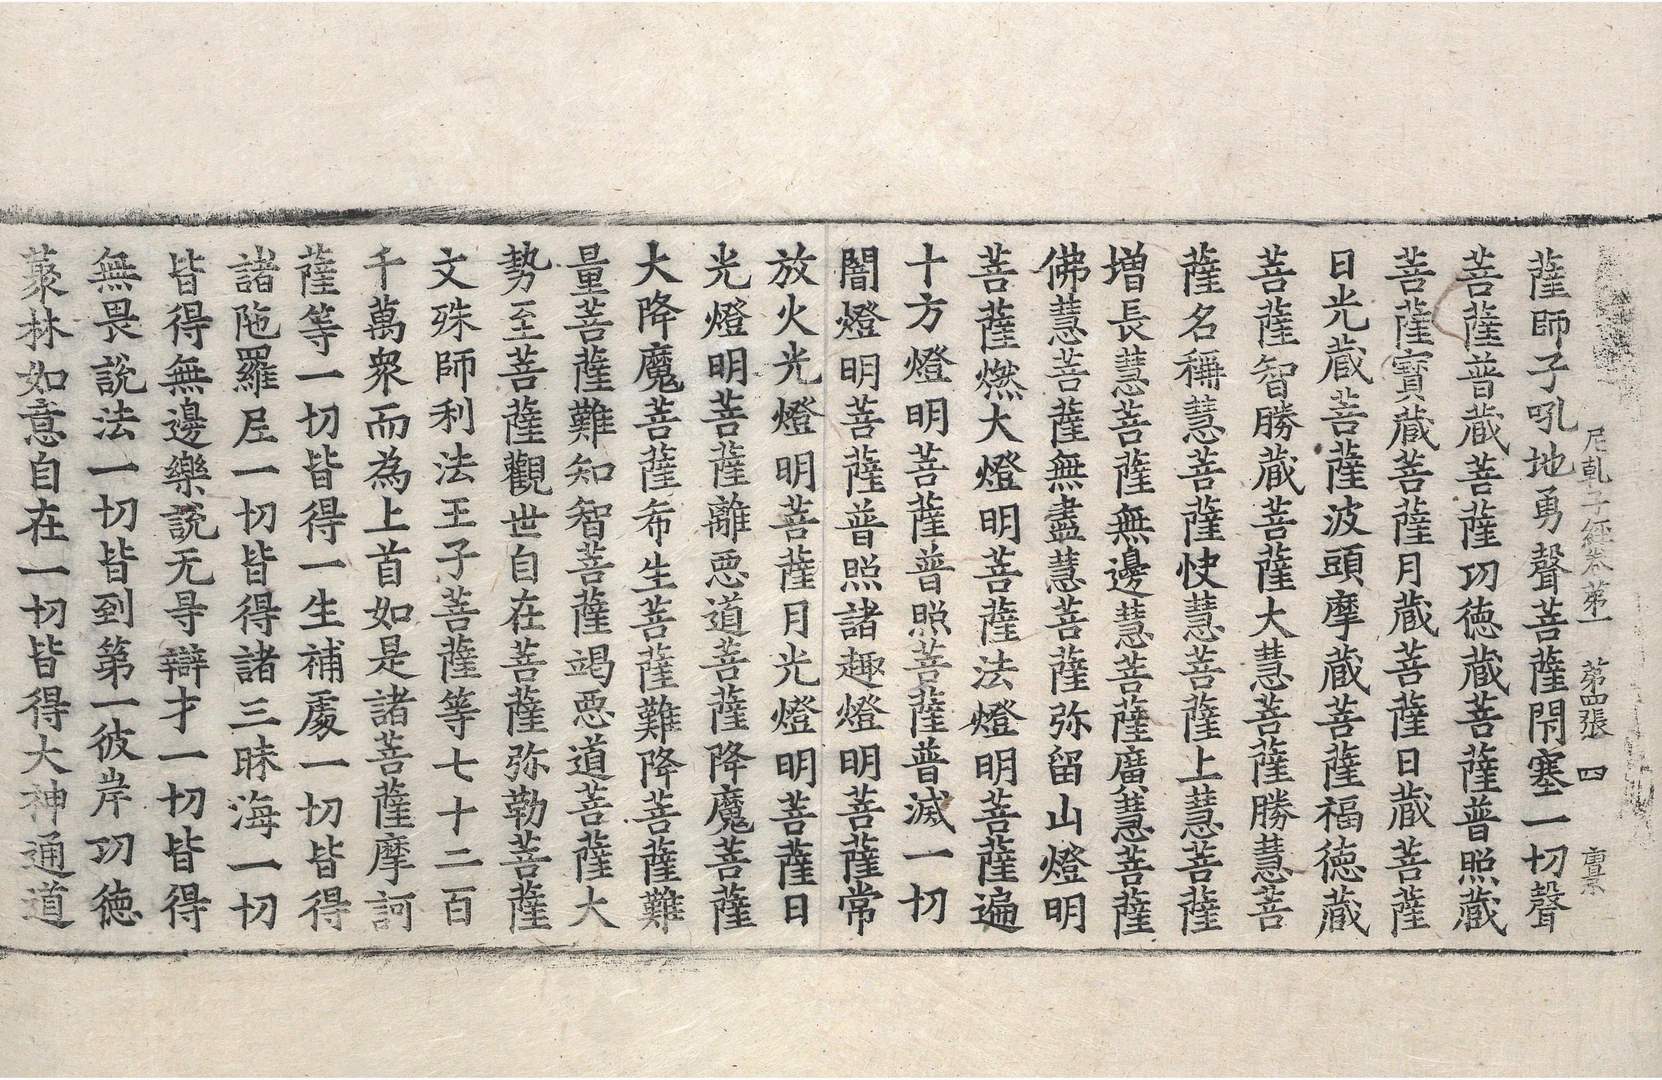 尼乾子經卷第一 第四張 四
薩師子吼地勇聲菩薩閇塞一切聲
菩薩普藏菩薩功德藏菩薩普照藏
菩薩寶藏菩薩月藏菩薩日藏菩薩
日光藏菩薩波頭摩藏菩薩福德藏
菩薩智勝藏菩薩大慧菩薩勝慧菩
薩名稱慧菩薩快慧菩薩上慧菩薩
増長慧菩薩無邊慧菩薩廣慧菩薩
佛慧菩薩無盡慧菩薩弥留山燈明
菩薩燃大燈明菩薩法燈明菩薩遍
十方燈明菩薩普照菩薩普滅一切
闇燈明菩薩普照諸趣燈明菩薩常
放火光燈明菩薩月光燈明菩薩日
光燈明菩薩離惡道菩薩降魔菩薩
大降魔菩薩希生菩薩難降菩薩難
量菩薩難知智菩薩竭惡道菩薩大
勢至菩薩觀世自在菩薩弥勒菩薩
文殊師利法王子菩薩等七十二百
千萬衆而為上首如是諸菩薩摩訶
薩等一切皆得一生補處一切皆得
諸陁羅尼一切皆得諸三昧海一切
皆得無邊樂説无㝵辯才一切皆得
無畏説法一切皆到第一彼岸功德
藂林如意自在一切皆得大神通道